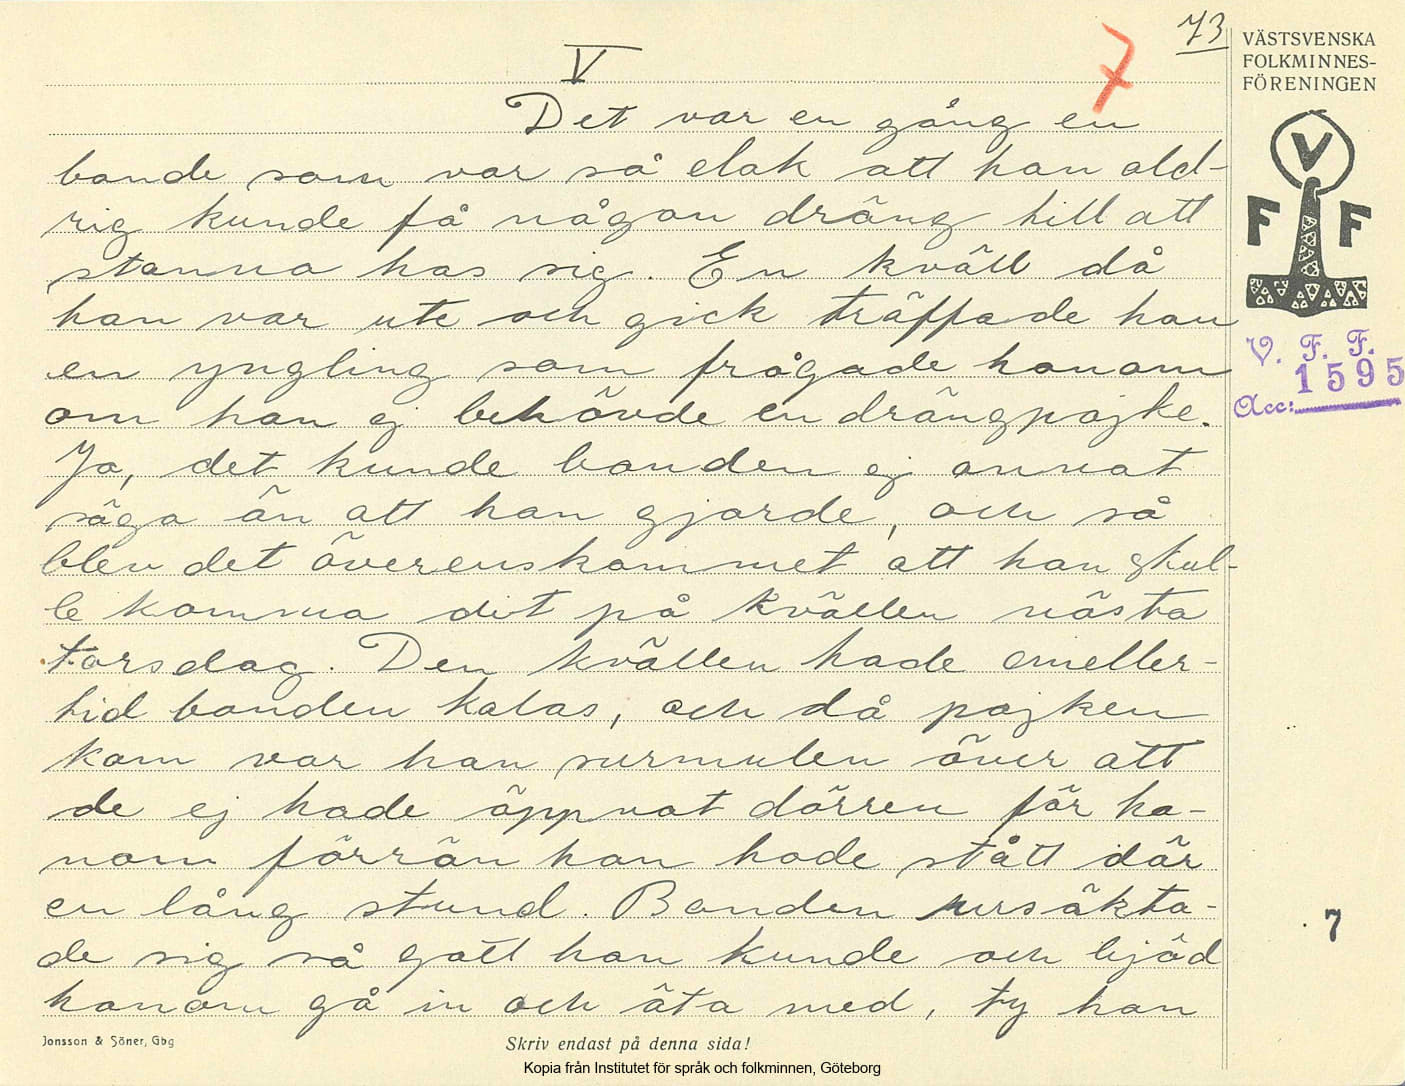 73
7
V
Det var en gång en
bonde som var så elak att han ald-
rig kunde få någon dräng till att
stanna hos sig. En kväll då
han var ute och gick träffade han
en yngling som frågade honom
om han ej behövde en drängpojke.
Ja, det kunde bonden ej annat
säga än att han gjorde, och så
blev det överenskommet att han skul-
le komma dit på kvällen nästa
torsdag. Den kvällen hade emeller-
tid bonden kalas, och då pojken
kom var han surmulen över att
de ej hade öppnat dörren för ho-
nom förrän han hade stått där
en lång stund. Bonden ursäkta-
de sig så gott han kunde och bjöd
honom gå in och äta med, ty han
VÄSTSVENSKA
FOLKMINNES-
FÖRENINGEN
V
F F
V. F. F.
1595
Acc:
7
Jonsson & Söner, Gbg
Skriv endast på denna sida!
Kopia från Institutet för språk och folkminnen, Göteborg